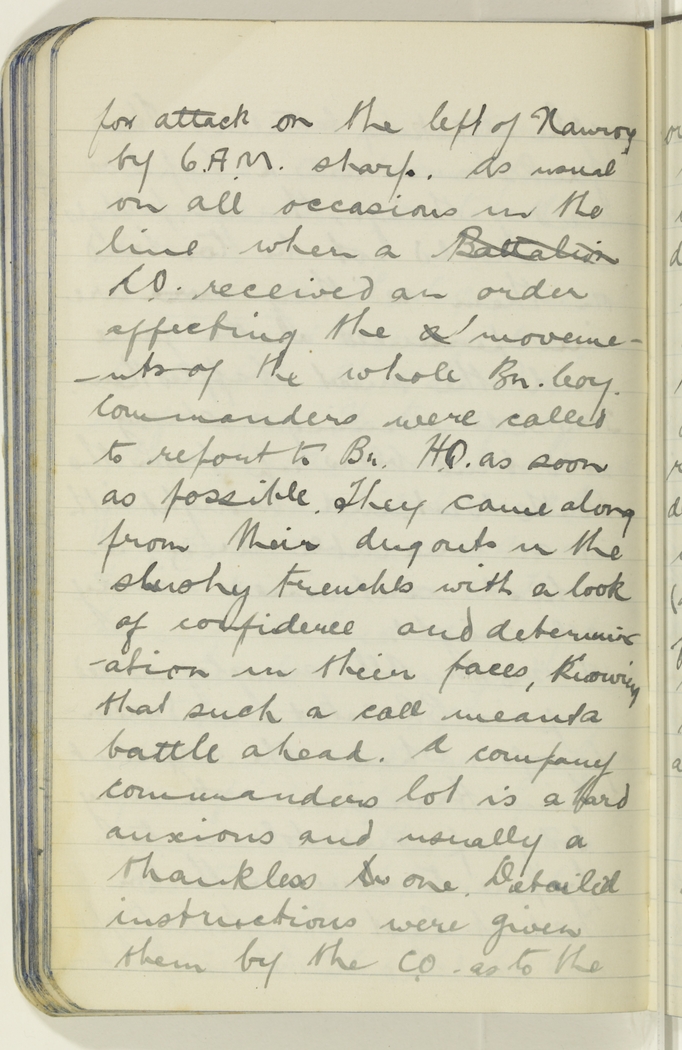 for attack on the left of Nauroy
by 6.A.M. sharp. As usual
on all occasions in the
line when a Battalion
C.O. received an order
affecting the moveme-
-nts of the whole Bn. Coy.
Commanders were called
to report to Bn. HQ. as soon
as possible. They came along
from their dugouts in the
slushy trenches with a look
of confidence and determin
-ation in their faces, knowing
that such a call meant a
battle ahead. A company
commanders lot is a hard
anxious and usually a
thankless one. Detailed
instructions were given
them by the CO. as to the